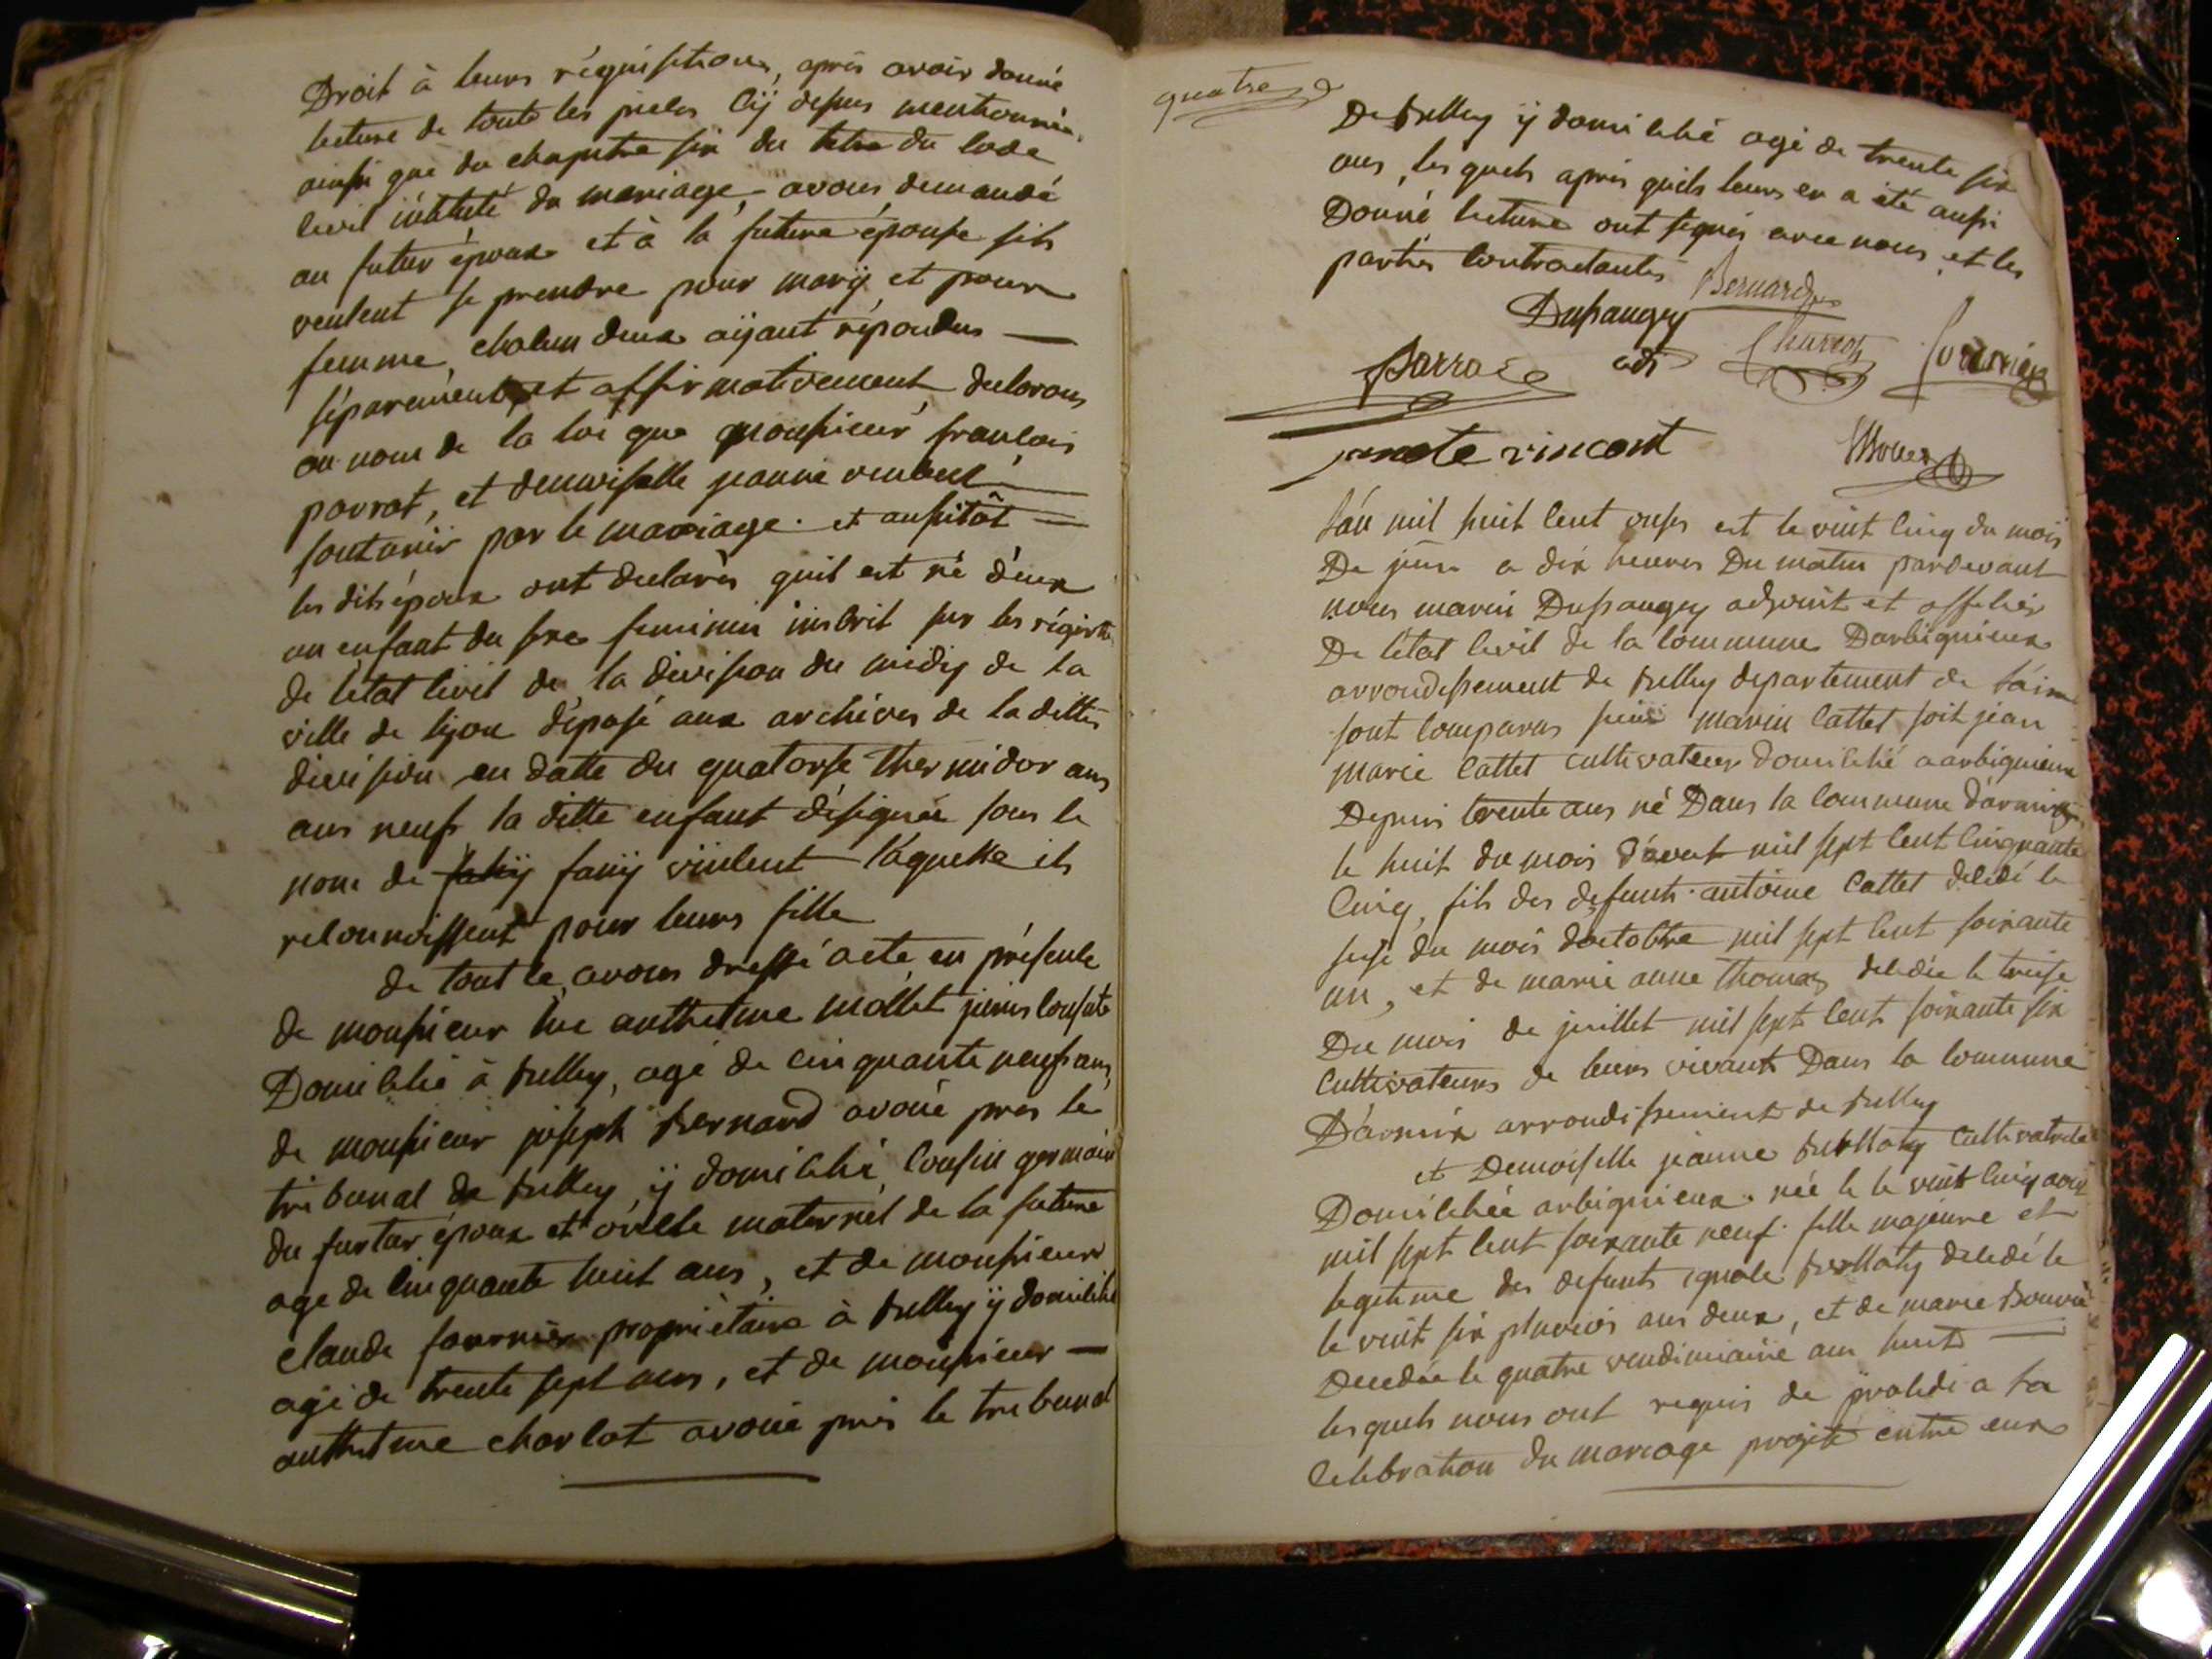 Droit à leurs réquisitions, après avoir donné
lecture de toute les pieces cÿ dessus mentionnée,
ainsi que du chapitre six du titre du code
civil intitulé du mariage, avons demandé
au futur époux et à la future épouse sils
veulent se prendre pour marÿ et pour
femme, chacun deux aÿant répondus —
séparément et affirmativement, declarons
au nom de la loi que monsieur francois
parrat, et demoiselle jeanne vincent
sont unir par le mariage. et aussitôt —
les dits époux ont declarés quil est né d'eux
un enfant du sexe feminin inscrit sur les régistre
de l'état civil de la division du midÿ de la
ville de lÿon déposé aux archives de la ditte
division en datte du quatorse thermidor ans
ans neuf la ditte enfant désignée sous le
nom de fanÿ vincent láquelle ils
reconnoissent pour leurs fille
de tout ce, avons dressé acte en présence
de monsieur luc anthelme mollet jurisconsulte
Domicilié à belley, agé de cinquante neuf ans,
de monsieur joseph bernard avoué pres le
tribunal de belley, ÿ domicilié, cousin germain
du furtur époux et oncle maternel de la future
age de cinquante huit ans, et de monsieur
claude fournier propriétaire à belley ÿ domicilié
agé de trente sept ans, et de monsieur —
anthelme charlot avoué près le tribunal
quatre
De belley ÿ domicilié agé de trente six
ans, les quels après quils leurs en a été aussi
Donné lecture ont signés avec nous et les
parties contractantes
Bernard
Dupaugey
adj
parrat
jeanete vincent
l'áu mil huit cent onse est le vint cinq du mois
De juin a dix heures Du matin pardevant
nous marin Dupaugey adjoint et officier
De létat civil de la commune Darbignieux
arrondissement de belley departement de láin
sont comparus marin cattet soit jean
marie cattet cultivateur domicilié a arbignieux
Depuis trente ans né Dans la commune d'armix
le huit du mois d'avout mil sept cent cinquante
cinq, fils des defunts antoine cattet décédé le
seise du mois d'octobre mil sept cent soixante
un, et de marie anne thomas décédée le treise
Du mois de juillet mil sept cent soixante six
cultivateurs de leurs vivant Dans la commune
D'armix arrondissement de belley
et Demoiselle jeanne cultivatrice
Domiciliée arbignieux née le le vint cinq aout
mil sept cent soixante neuf fille majeure et
legitime des defunts décédé le
le vint six pluvios ans deux, et de marie
Decedée le quatre vendimiaire an huit —
les quels nous ont requis de procédé a la
célébration du mariage projetté entre eux